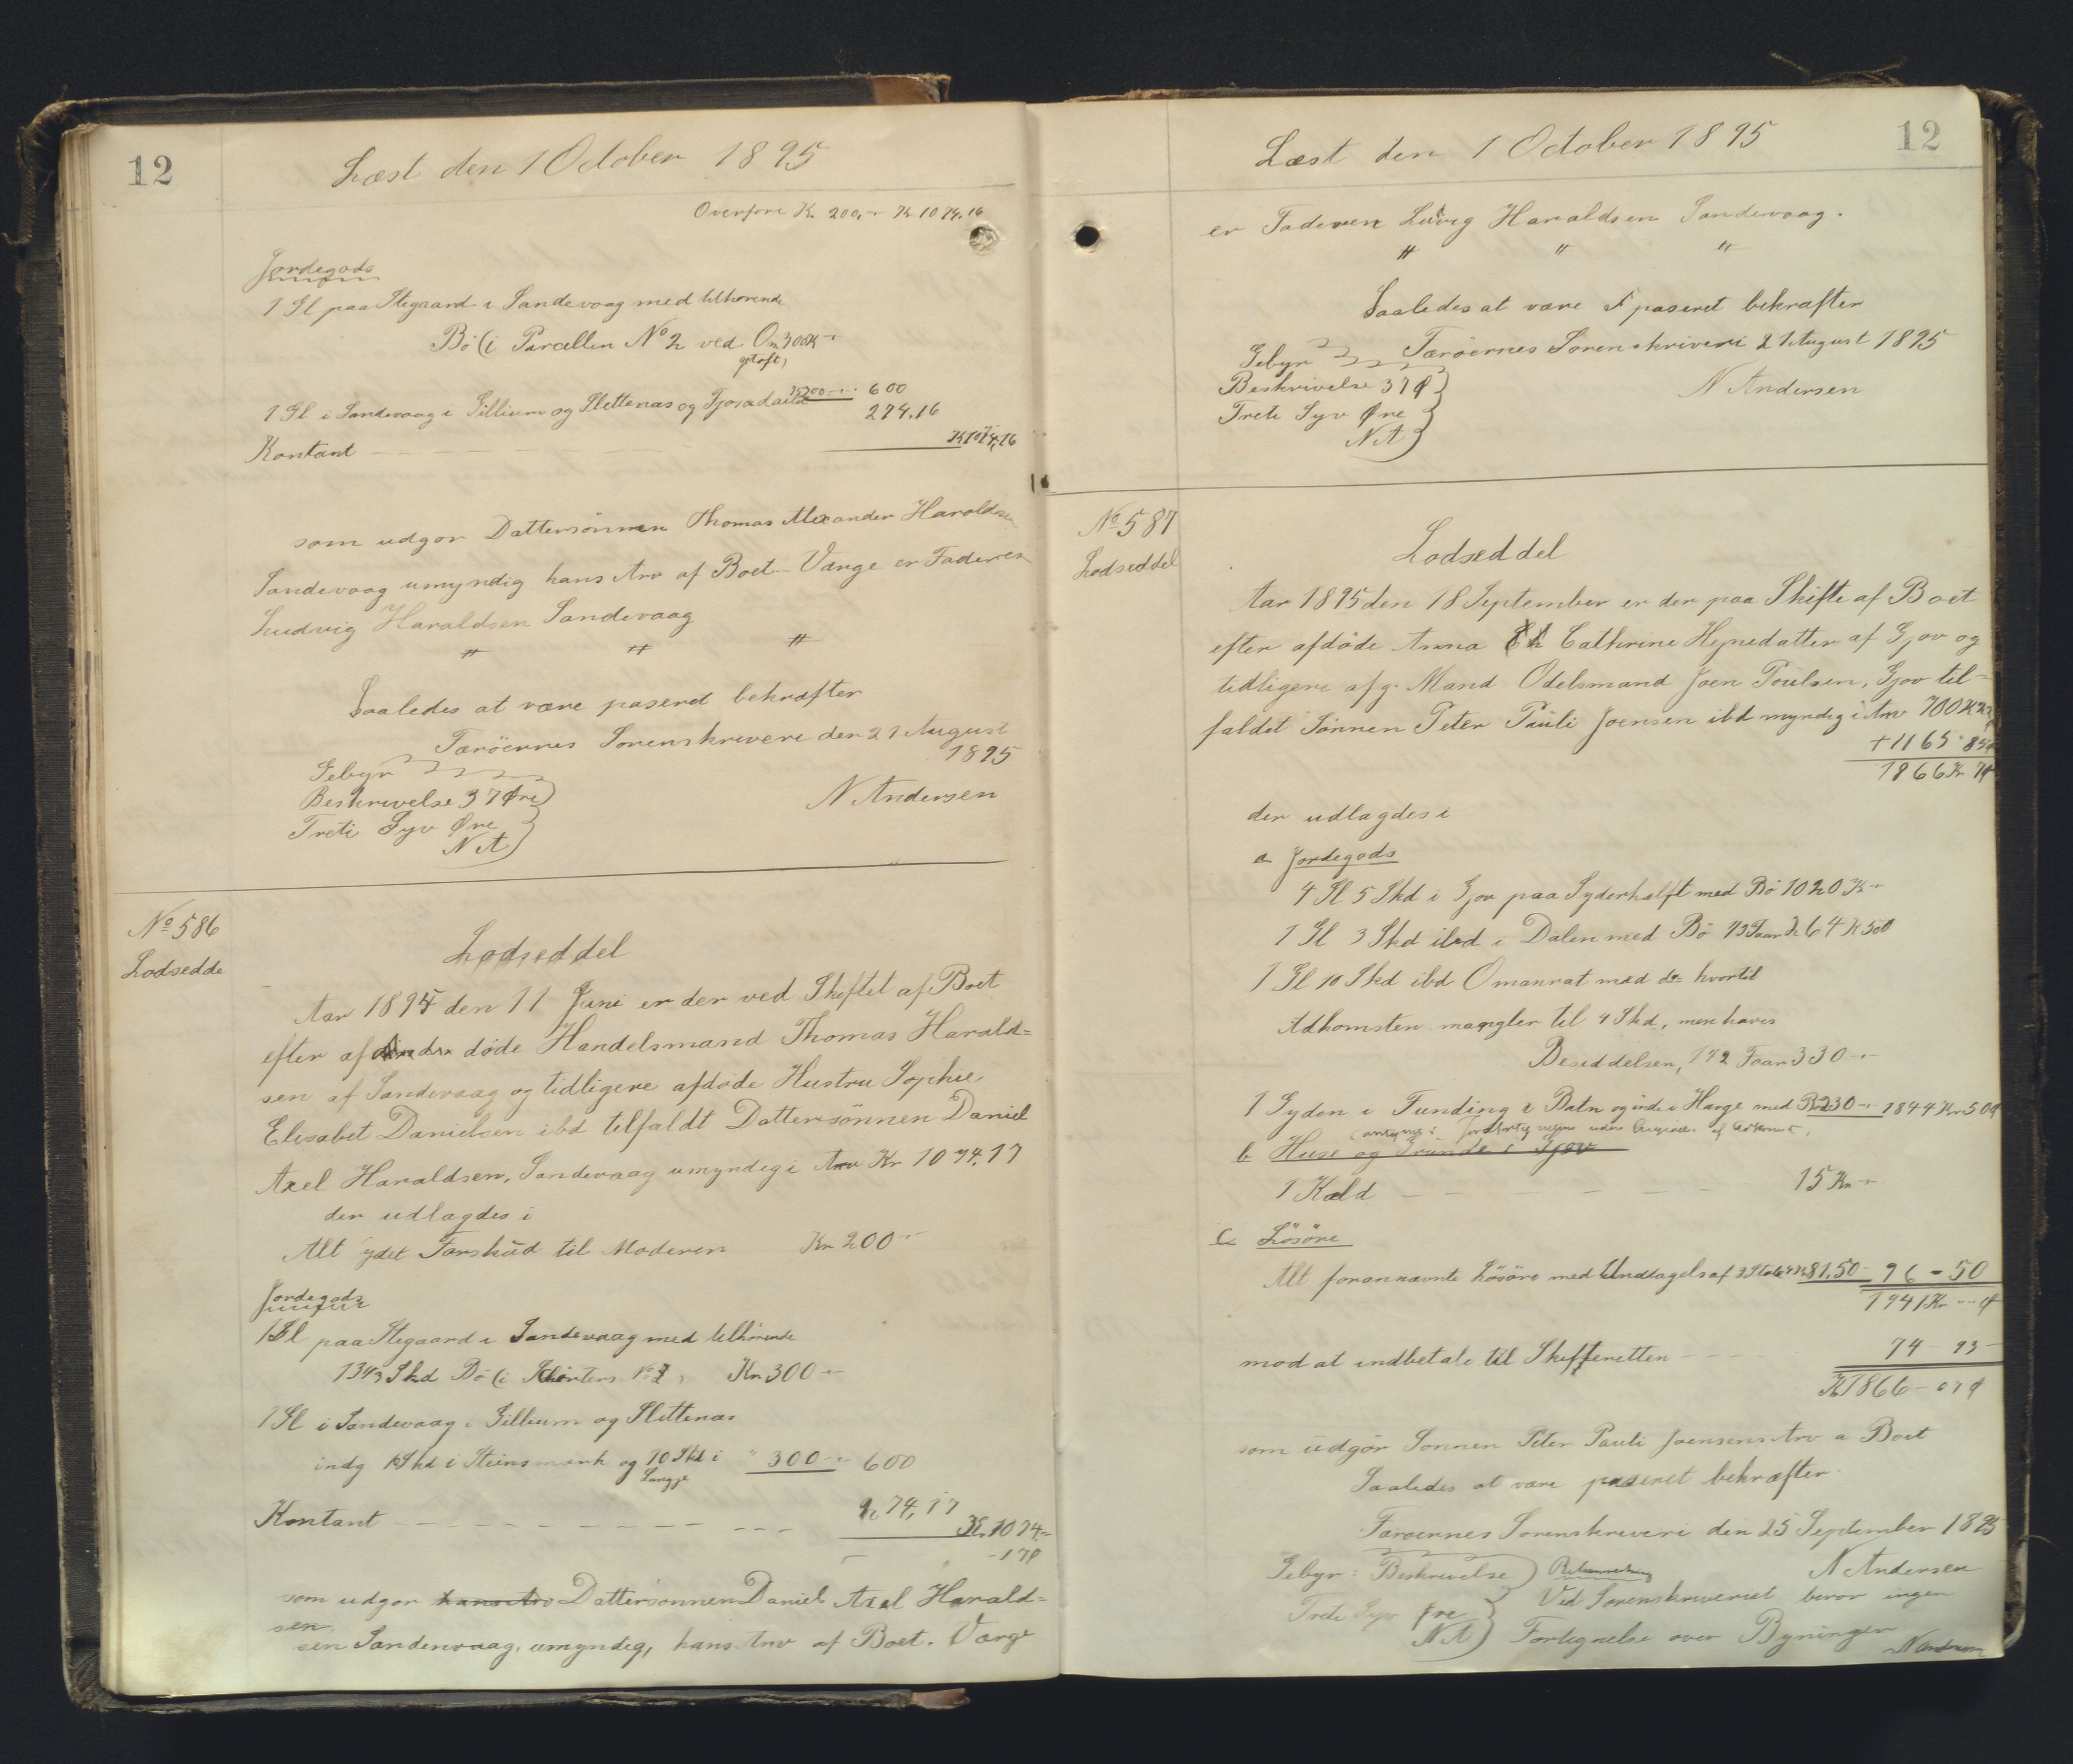 12
Læst den 1 October 1895
Overføre K. 200,- K 1074.16
Jordegods
1 Gl paa Stegaard i Sandevaag med tilhørende
Bø (i Parcellen No 2 ved On 300K -
gtoft)
1 Gl i Sandevaag i Gillium og Slettenæs og 300 - 600
Kontant 274.16
K 1074,16
som udgør Dattersønnen Thomas Alexander Haraldsen
Sandevaag umyndig hans Arv af Boet - Værge er Faderen
Ludvig Haraldsen Sandevaag
" " "
Saaledes at være paseret bekræfter
Færöernes Sorenskriveri den 21 August
1895
Gebyr
Beskrivelse 37 Øre
Treti Syv Øre
NA
N Andersen
No 586
Lodsedde
Lodseddel
Aar 1895 den 11 Juni er der ved Skiftet af Boet
efter af døde Handelsmand Thomas Harald=
sen af Sandevaag og tidligere afdøde Hustru Sophie
Elisabet Danielsen ibd tilfaldt Dattersönnen Daniel
Axel Haraldsen, Sandevaag umyndig i Arv Kr 1074.17
der udlagdes i
Alt ydet Forskud til Moderen Kr 200 -
Jordegods
1 Gl paa Stegaard i Sandevaag med tilhørende
13 4/3 Skd Bø (i No 7) Kr 300 -
1 Gl i Sandevaag i Gillium og Slettenæs
indg 1 Skd i Steinsmørk og 10 Skd i " 300 - 600
Kontant 274,17
Kr. 1074 -
- 17 ø
som udgør hans Arv Dattersønnen Daniel Axel Harald=
sen
sen Sandevaag, umyndig, hans Arv af Boet. Værge
12
Læst den 1 October 1895
er Faderen Ludvig Haraldsen Sandevaag.
" " "
Saaledes at være paseret bekræfter
Færöernes Sorenskriveri 21 August 1895
Gebyr
Beskrivelse 37 ø
Treti Syv Øre
NA
N Andersen
No 587
Lodseddel
Lodseddel
Aar 1895 den 18 September er der paa Skifte af Boet
efter afdöde Anna Cathrine Hejnedatter af Gjov og
tidligere afg. Mand Odelsmand Joen Poulsen, Gjov til=
faldet Sönnen Peter Pauli Joensen ibd myndig i Arv 700 K
+ 1165 - 85 ø
1866 Kr 7 ø
der udlagdes i
a Jordegods
4 Gl 5 Skd i Gjov paa Syderhalft med Bø 1020 K -
1 Gl 3 Skd ibd i Dalen med Bø 264 K 50 ø
1 Gl 10 Skd ibd med de hvortil
Adkomsten mangler til 4 Skd, men haves
Besiddelsen, 1 1/2 Faar 330 -
1 Gyden i Funding i Batn og inde i Hauge med Bø 230 - 1844 Kr 50 ø
b Huse og Grunde i Gjov
1 Kald 15 Kr -
c Lösöre
Alt forannævnte Lösöre med Undtagelse af 81,50 - 96 - 50
1941 Kr - ø
mod at indbetale til Skifteretten 74 - 93 -
K 1866 - 07 ø
som udgör Sonnen Peter Pauli Joensens Arv a Boet
Saaledes at være paseret bekræfter
Færoernes Sorenskriveri den 25 September 1895
Gebyr: Beskrivelse
Treti Syv Øre
NA
N Andersen
Ved Sorenskriveriet beror ingen
Fortegnelse over Bygninger
N Andersen